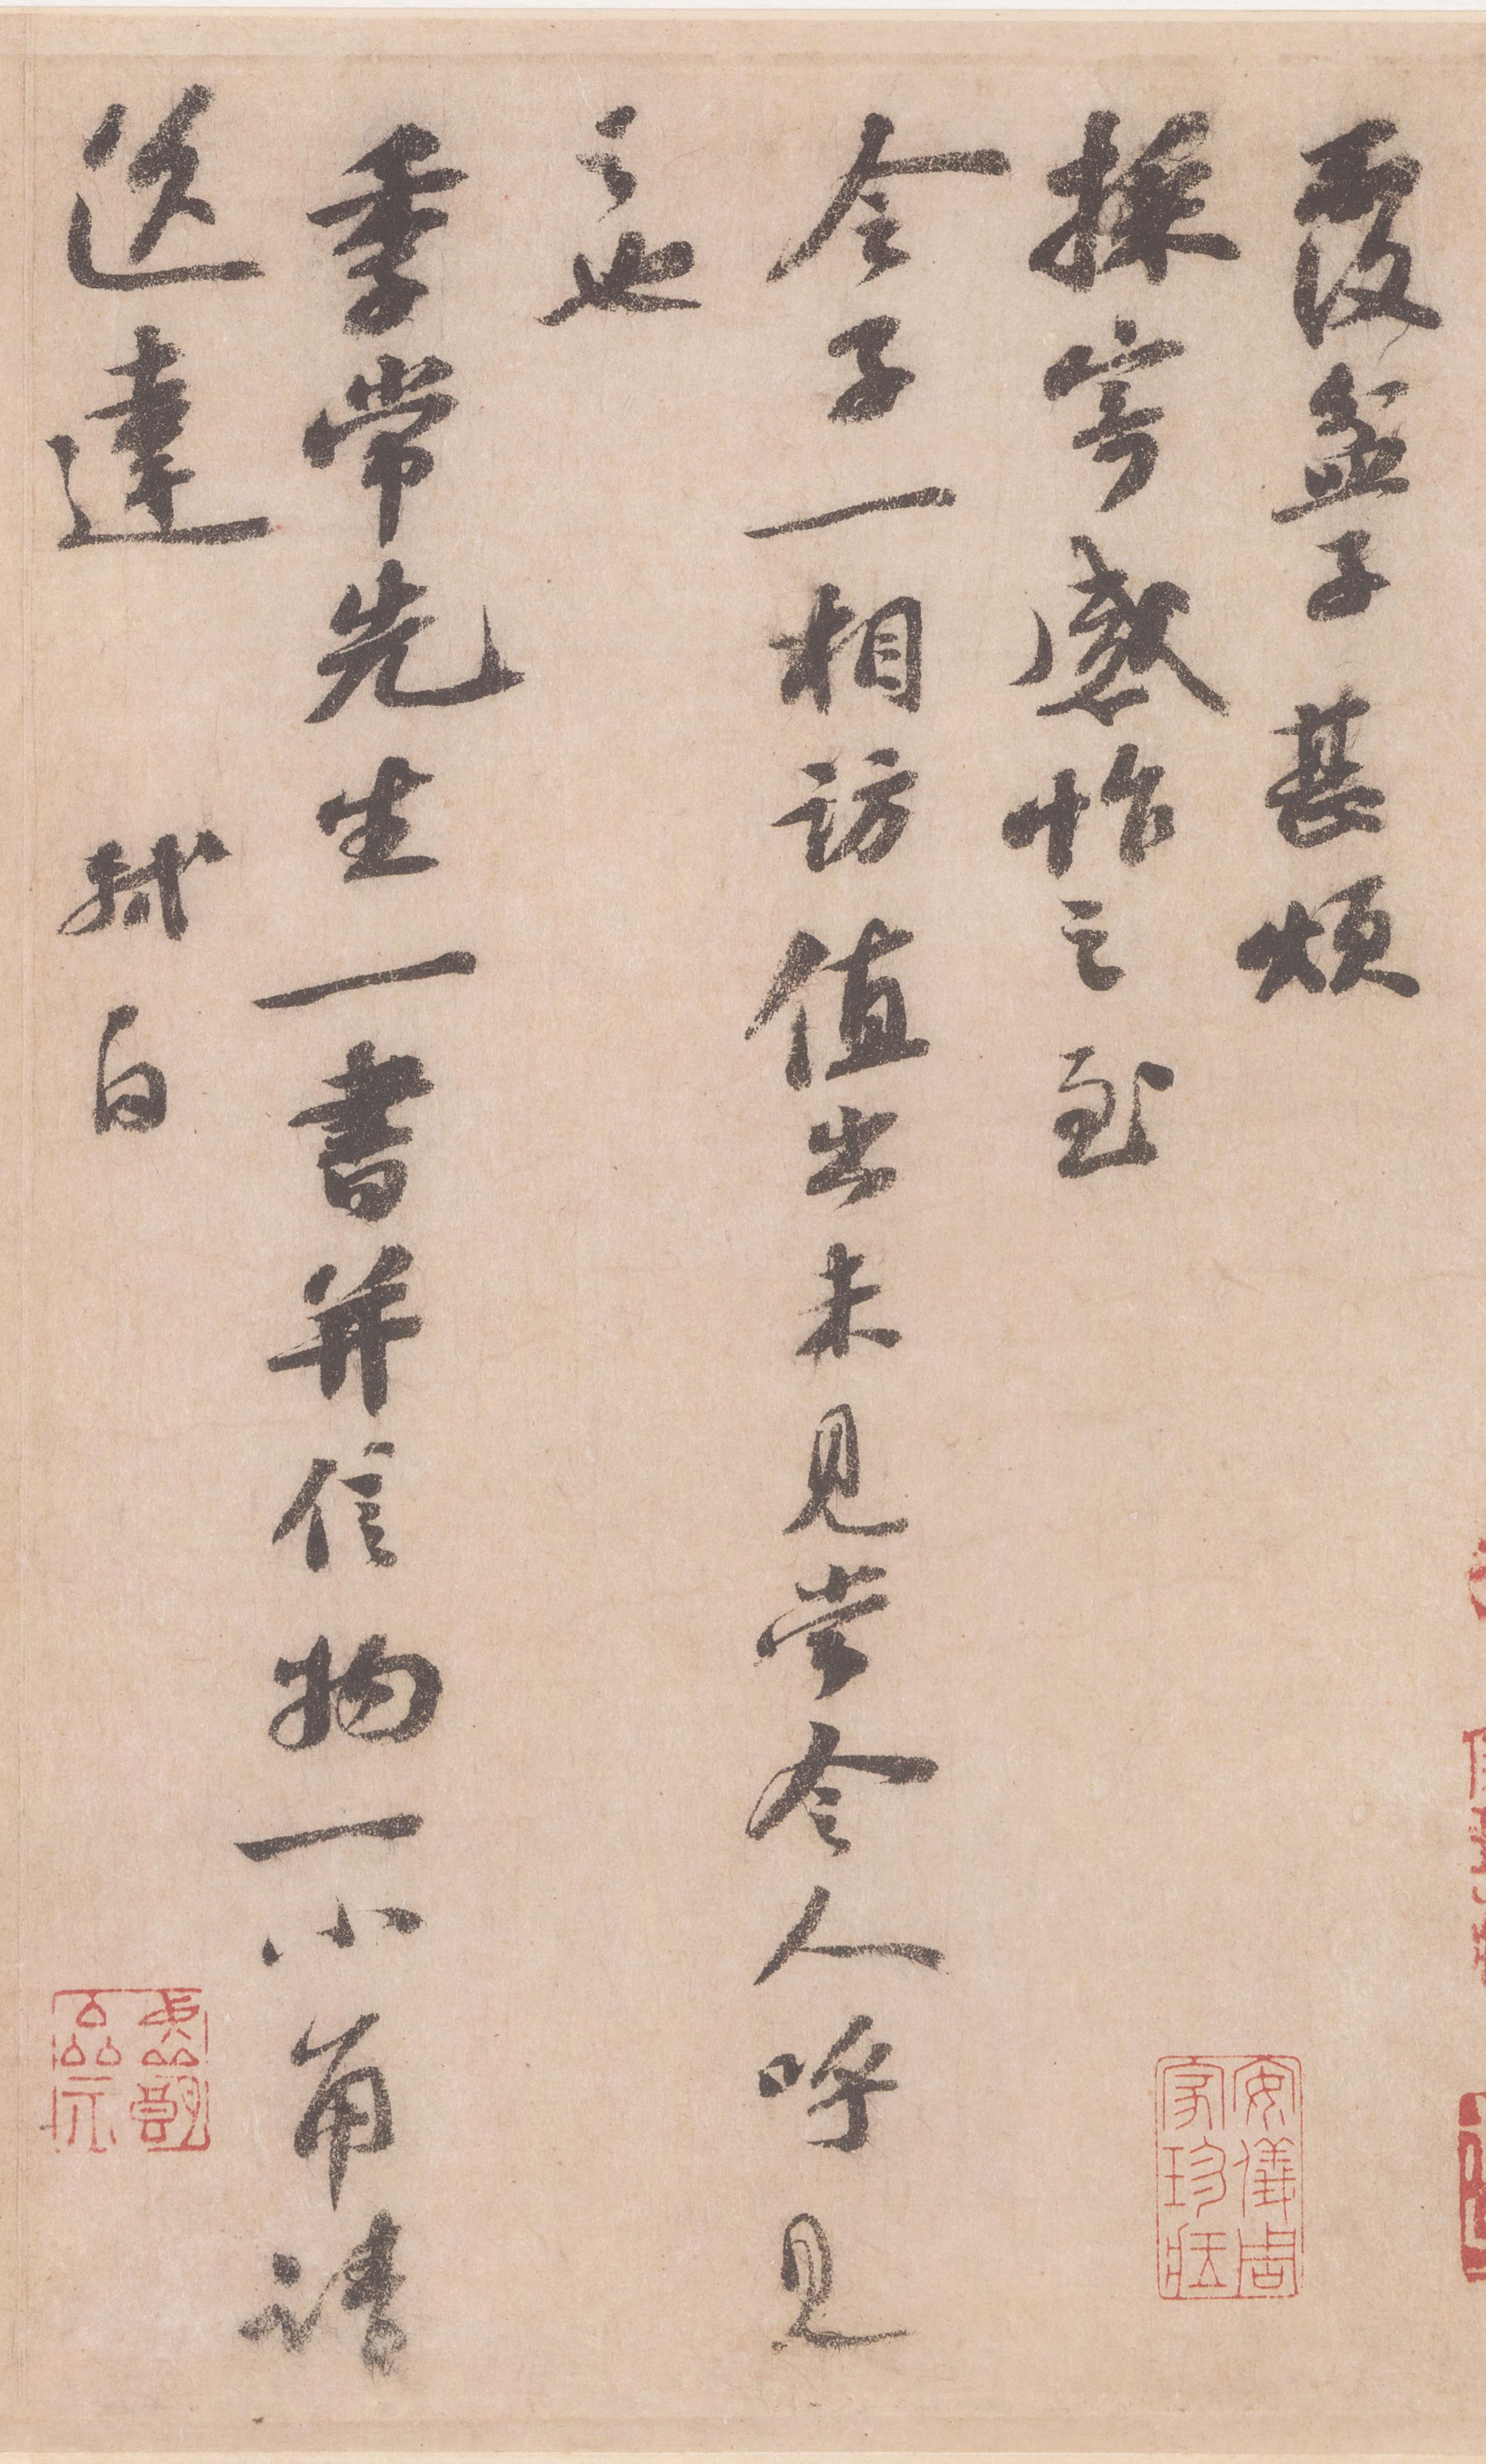 覆盆子甚煩
採寄感怍之至
令子一相訪值出未見當令人呼見
之也
季常先生一書并信物一小角請
送達 軾白
安儀周
家珍藏